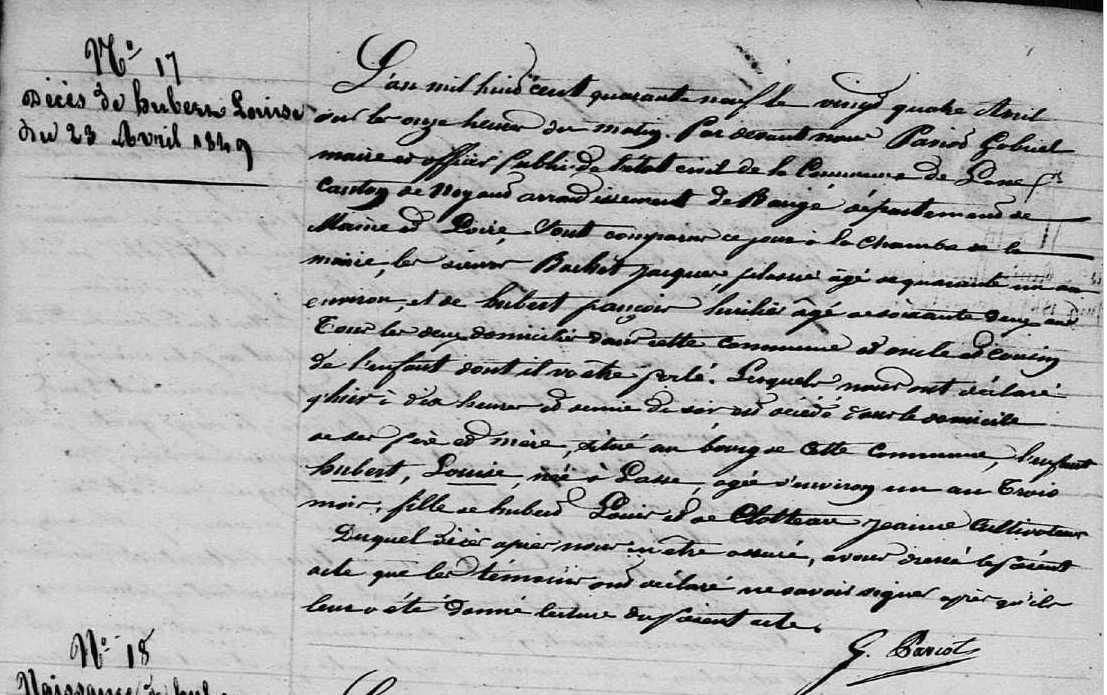 N° 17
Décès de hubert Louise
du 23 Avril 1849
L'an mil huit cent quarante neuf le vingt quatre Avril
sur les onze heures du matin. Par devant nous Pariot Gabriel
maire et officier public de l'état civil de la Commune de
canton de Noyant arrondissement de Baugé département de
Maine et Loire, Sont comparus ce jour à la Chambre de la
mairie, les sieurs Bachet jacques, âgé de quarante un an
environ, et de hubert françois âgé de soixante deux ans
Tous les deux domiciliés dans cette commune et oncle et cousin
de l'enfant dont il va être parlé. Lesquels nous ont déclaré
qu'hier à dix heures et demie du soir est décédé dans le domicile
de ses père et mère, situé au bourg de cette commune, l'enfant
hubert, Louise, née à Lasse, agée d'environ un an Trois
mois, fille de hubert Louis et de Clotteau jeanne Cultivateur
Duquel décès après nous en être assuré, avons dressé le présent
acte que les témoins ont déclaré ne savoir signer après qu'ils
leur a été donné lecture du présent acte.
G. Pariot
N° 18
Naissance de hub